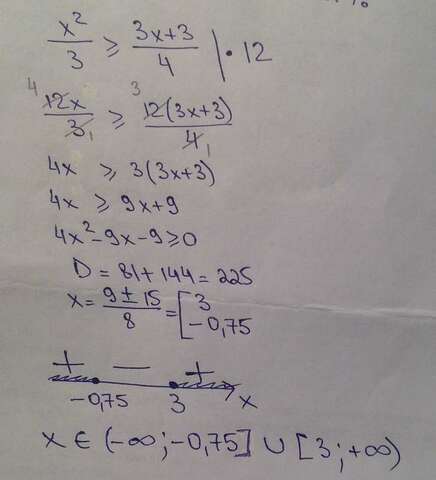 x²/3 ≥ (3x+3)/4 | • 12
4 12x/3 1 ≥ 3 12(3x+3)/4 1
4x ≥ 3(3x+3)
4x ≥ 9x+9
4x²-9x-9≥0
D = 81+144=225
x= (9±15)/8 = [3
-0,75
+ — +
-0,75 3 x
x ∈ (-∞;-0,75] ∪ [3;+∞)